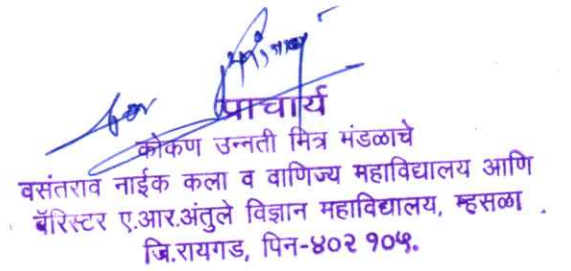 for
प्राचार्य
कोकण उन्नती मित्र मंडळाचे
वसंतराव नाईक कला व वाणिज्य महाविद्यालय आणि
बॅरिस्टर ए.आर.अंतुले विज्ञान महाविद्यालय, म्हसळा .
जि.रायगड, पिन-४०२ १०५.